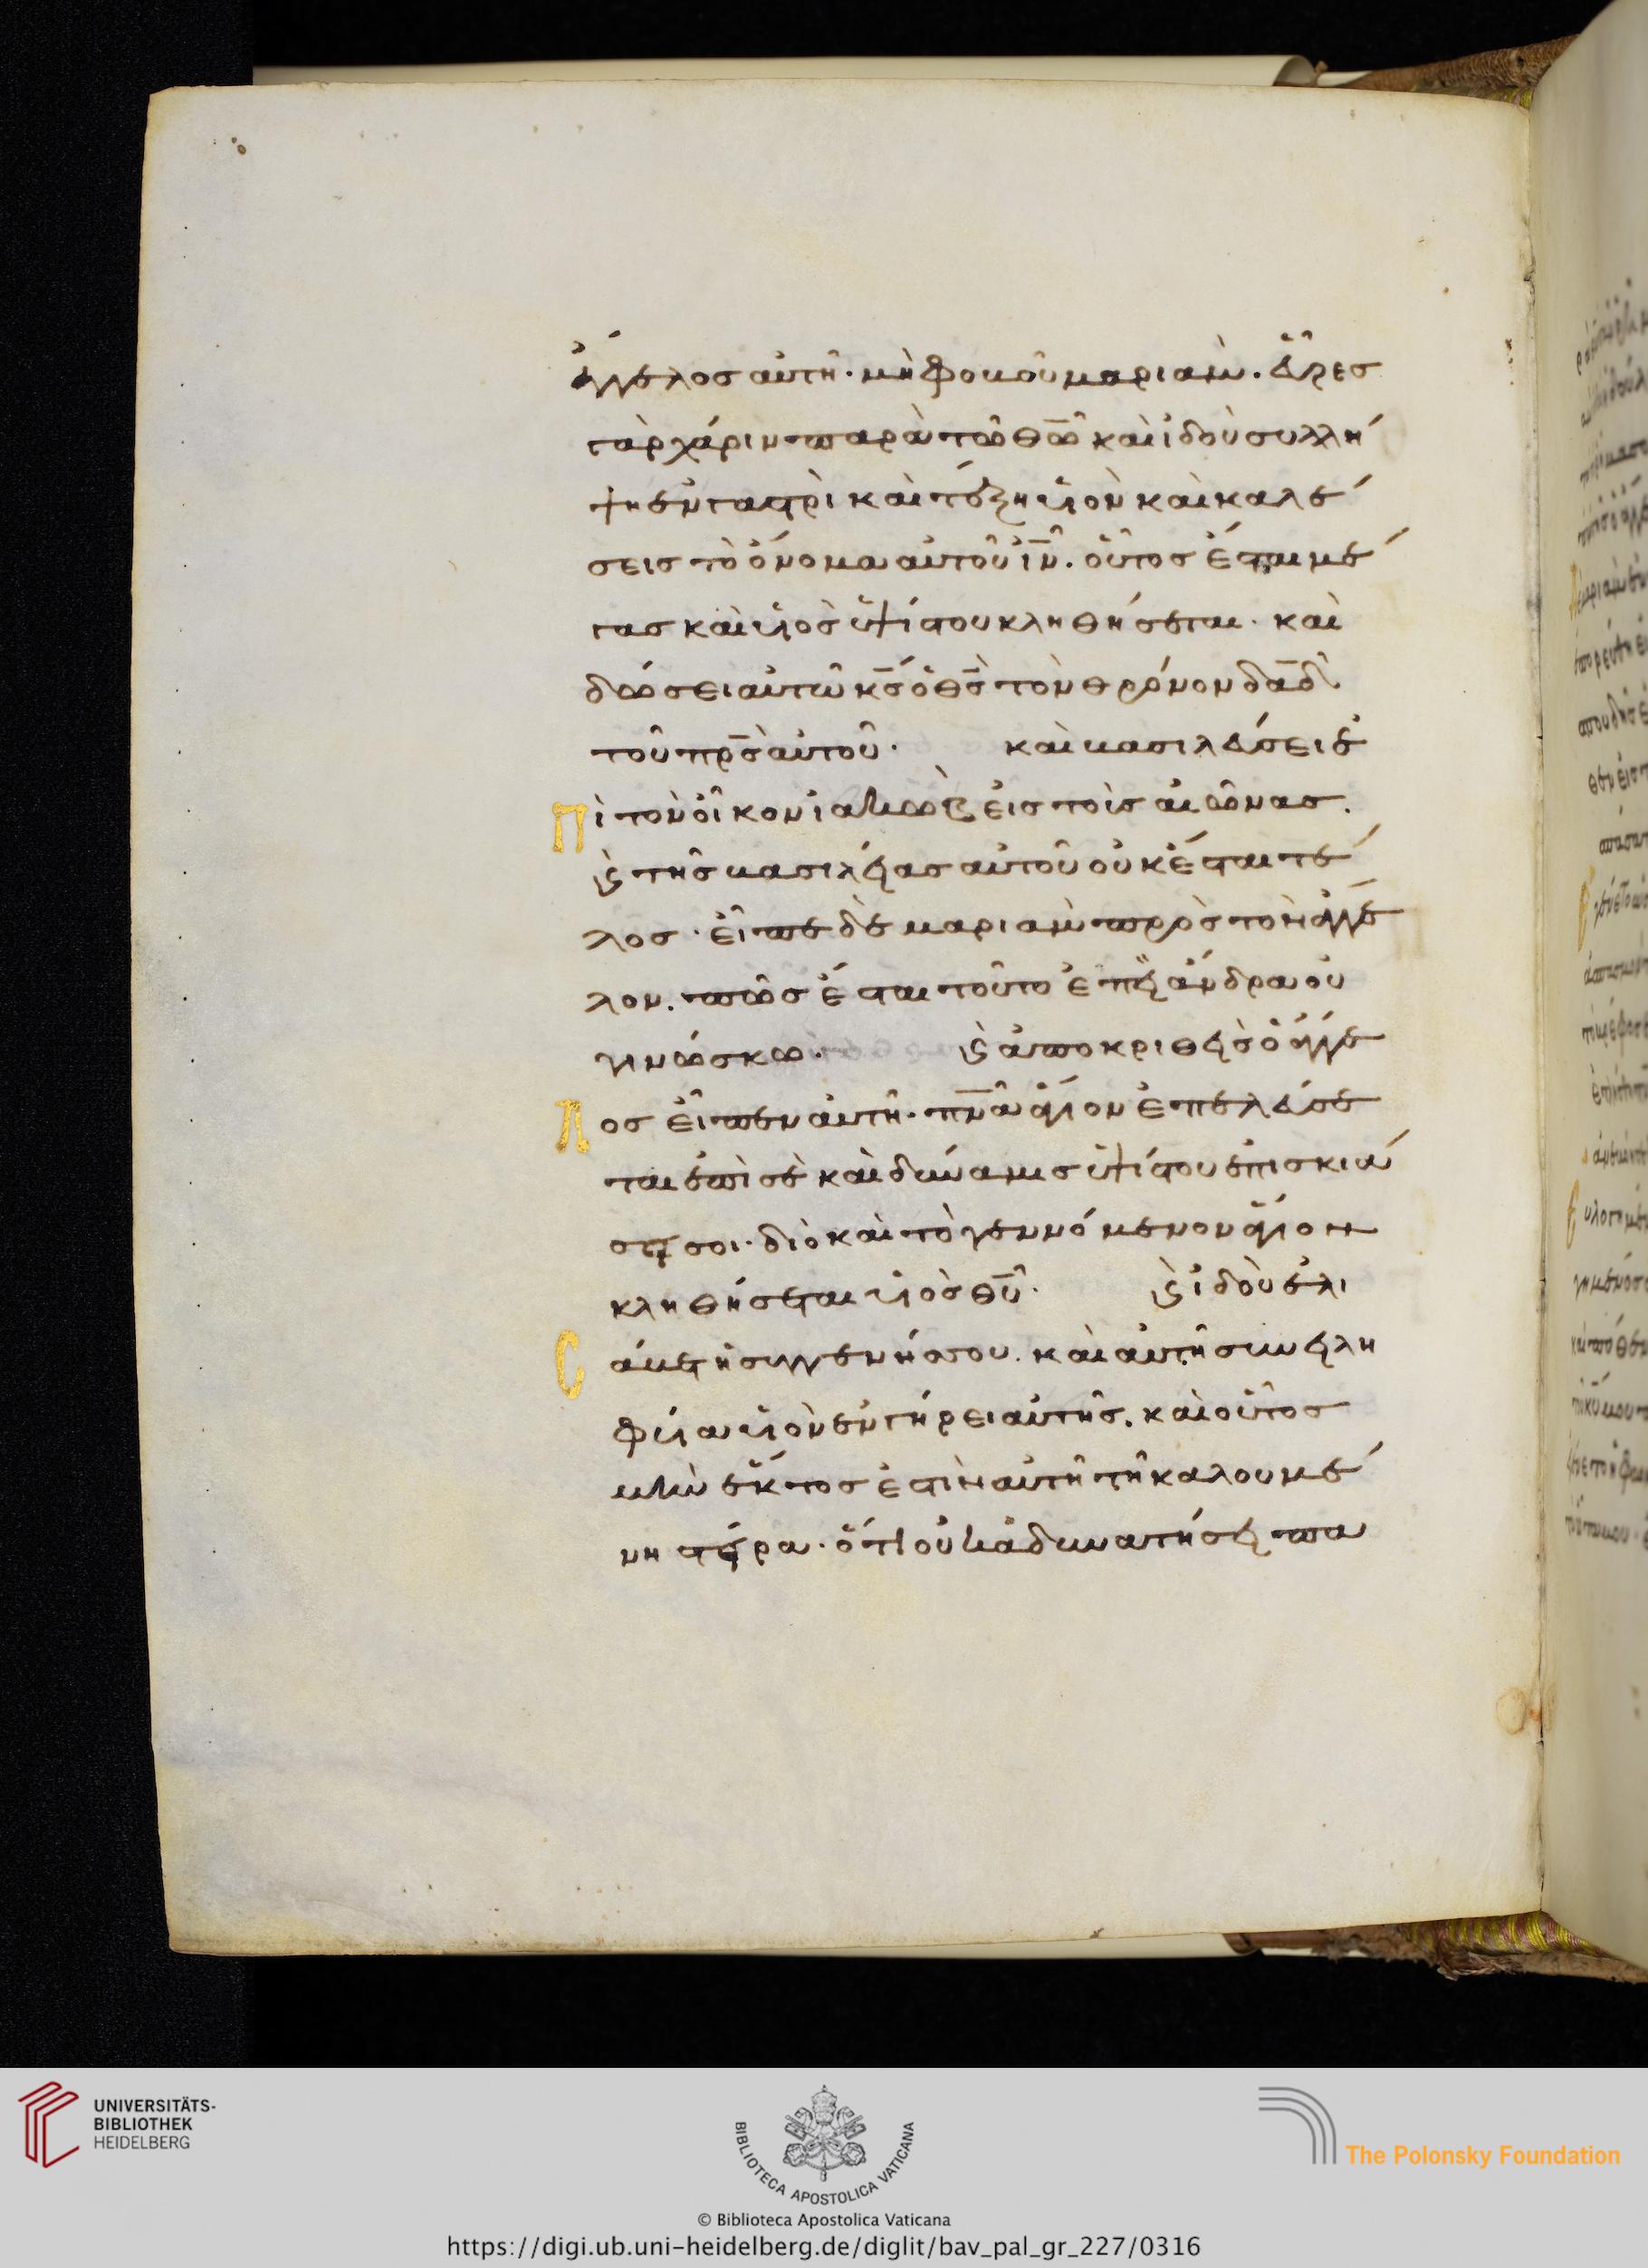 ἄγγελος αὐτῆ· μὴ φοβοῦ μαριὰμ. εὗρες
γὰρ χάριν παρὰ τῶ θῶ καὶ ἰδοὺ συλλή
ψη ἐν γαστρὶ καὶ τέξη υἱὸν καὶ καλέ
σεις τὸ ὄνομα αὐτοῦ ἰν. οὗτος ἔσται μέ
γας καὶ υἱὸς ὑψίστου κληθήσεται. καὶ
δώσει αὐτῶ κς ὁ θς τὸν θρόνον δαδ
τοῦ πρς αὐτοῦ· καὶ βασιλεύσει ἐ
Πὶ τὸν οἶκον ἰακὼβ εἰς τοὺς αἰῶνας.
ϗ τῆς βασιλείας αὐτοῦ οὐκ ἔσται τέ
λος· εἶπε δὲ μαριὰμ πρὸς τὸν ἄγγε
λον. πῶς ἔσται τοῦτο ἐπεὶ ἄνδρα οὐ
γινώσκω. ϗ ἀποκριθεὶς ὁ ἄγγε
Λος εἶπεν αὐτῆ· πνα ἅγιον ἐπελεύσε
ται ἐπὶ σὲ καὶ δύναμις ὑψίστου ἐπισκιά
σει σοι· διὸ καὶ τὸ γεννόμενον ἅγιον
κληθήσεται υἱὸς θυ· ϗ ἰδοὺ ἐλι
Σάβετ ἡ συγγενής σου. καὶ αὐτὴ συνειλη
φυῖα υἱὸν ἐν γήρει αὐτῆς. καὶ οὗτος
μὴν ἕκτος ἐστὶν αὐτῆ τῆ καλουμέ
νη στείρα· ὅτι οὐκ ἀδυνατήσει πα
UNIVERSITÄTS-
BIBLIOTHEK
HEIDELBERG
BIBLIOTECA APOSTOLICA VATICANA
The Polonsky Foundation
© Biblioteca Apostolica Vaticana
https://digi.ub.uni-heidelberg.de/diglit/bav_pal_gr_227/0316